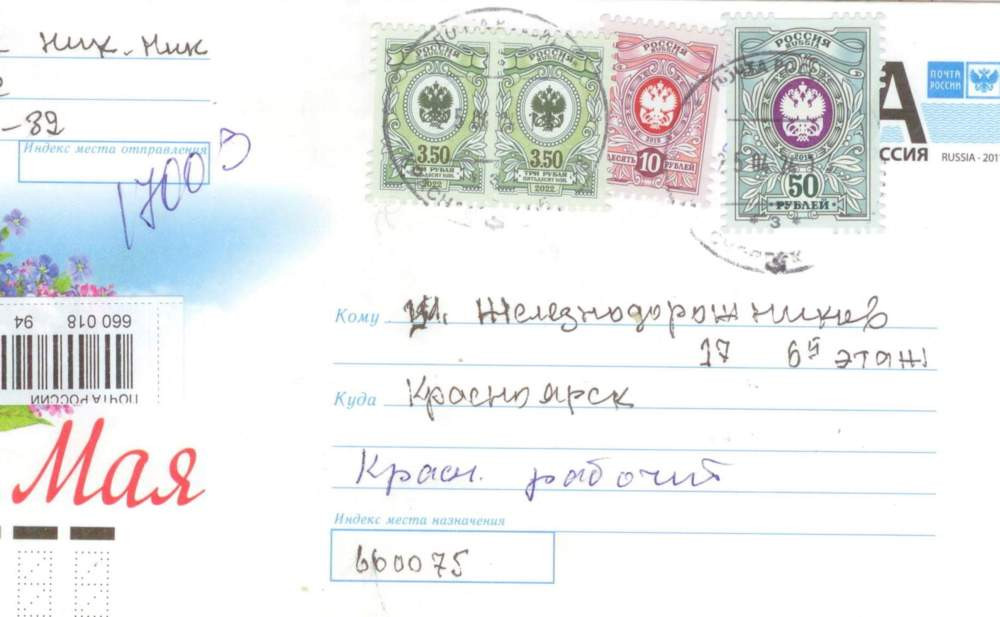 Ник. Ник
-89
Индекс места отправления
1700 В
660 018 94
ПОЧТА РОССИИ
Мая
РОССИЯ
RUSSIA
3.50
ТРИ РУБЛЯ
ПЯТЬДЕСЯТ КОП.
2022
РОССИЯ
RUSSIA
3.50
ТРИ РУБЛЯ
ПЯТЬДЕСЯТ КОП.
2022
РОССИЯ
RUSSIA
2019
10
ДЕСЯТЬ РУБЛЕЙ
РОССИЯ
RUSSIA
2019
50
РУБЛЕЙ
ПОЧТА
РОССИИ
А
ССИЯ RUSSIA - 201
Кому ул. Железнодорожников
17 6й этаж
Куда Красноярск
Красн. рабочий
Индекс места назначения
660075